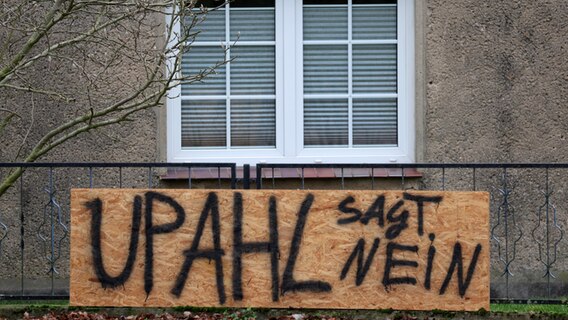 UPAHL
SAGT
NEIN